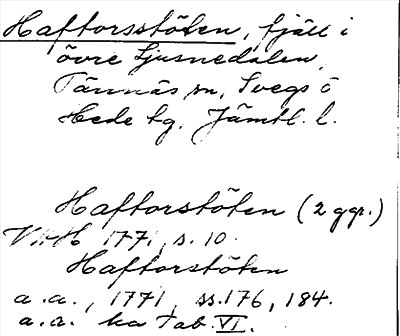 Haftorsstöten, fjäll i
övre Ljusnedalen,
Tännäs sn, Svegs o
Hede tg, Jämtl. l.
Haftorstöten (2 ggr.)
1771, s. 10.
Haftorstöten
a.a., 1771, ss. 176, 184.
a.a. Tab. VI.